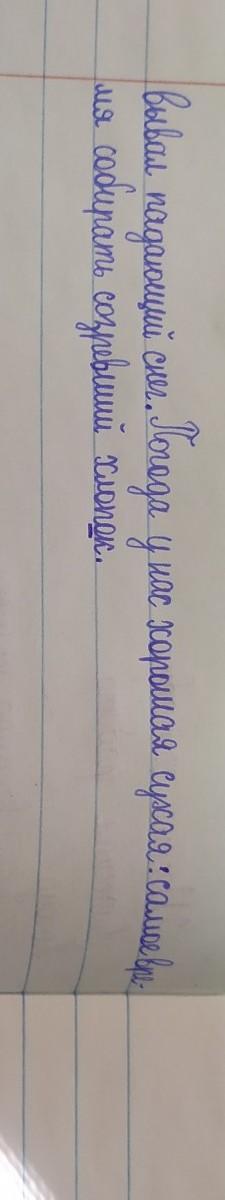 вывал падающий снег. Погода у нас хорошая сухая: самое вре-
мя собирать созревший хлопок.